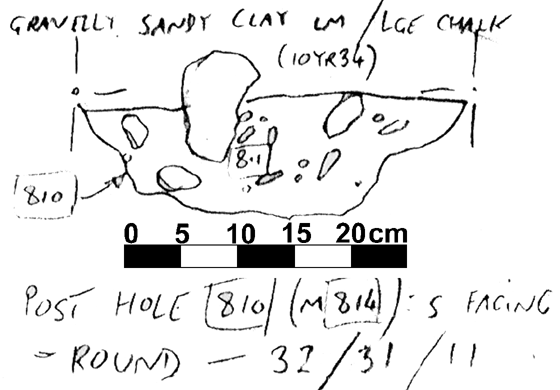 GRAVELLY SANDY CLAY LM / LGE CHALK
(10YR34)
811
810
0 5 10 15 20 cm
POST HOLE 810 / (M814) : S FACING
- ROUND - 32 / 31 / 11